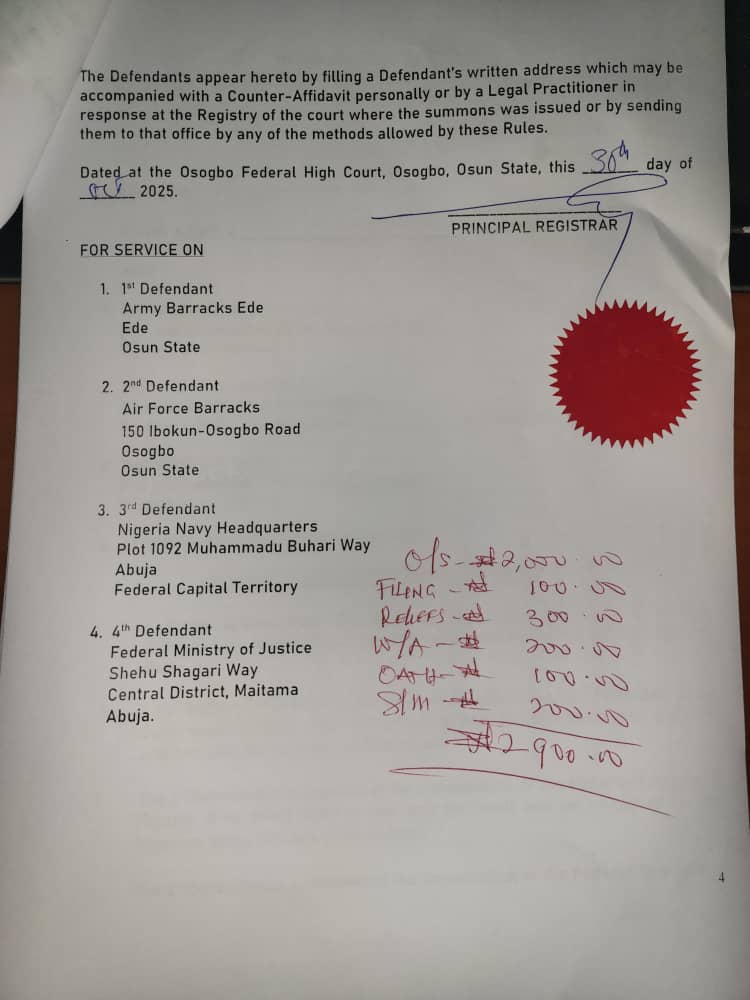 The Defendants appear hereto by filling a Defendant's written address which may be
accompanied with a Counter-Affidavit personally or by a Legal Practitioner in
response at the Registry of the court where the summons was issued or by sending
them to that office by any of the methods allowed by these Rules.
Dated at the Osogbo Federal High Court, Osogbo, Osun State, this 30th day of
Oct 2025.
PRINCIPAL REGISTRAR
FOR SERVICE ON
1. 1st Defendant
Army Barracks Ede
Ede
Osun State
2. 2nd Defendant
Air Force Barracks
150 Ibokun-Osogbo Road
Osogbo
Osun State
3. 3rd Defendant
Nigeria Navy Headquarters
Plot 1092 Muhammadu Buhari Way
Abuja
Federal Capital Territory
4. 4th Defendant
Federal Ministry of Justice
Shehu Shagari Way
Central District, Maitama
Abuja.
O/S - ₦2,000.00
FILING - ₦ 100.00
RELIEFS - ₦ 300.00
W/A - ₦ 200.00
OATH - ₦ 100.00
S/M - ₦ 200.00
₦2900.00
4